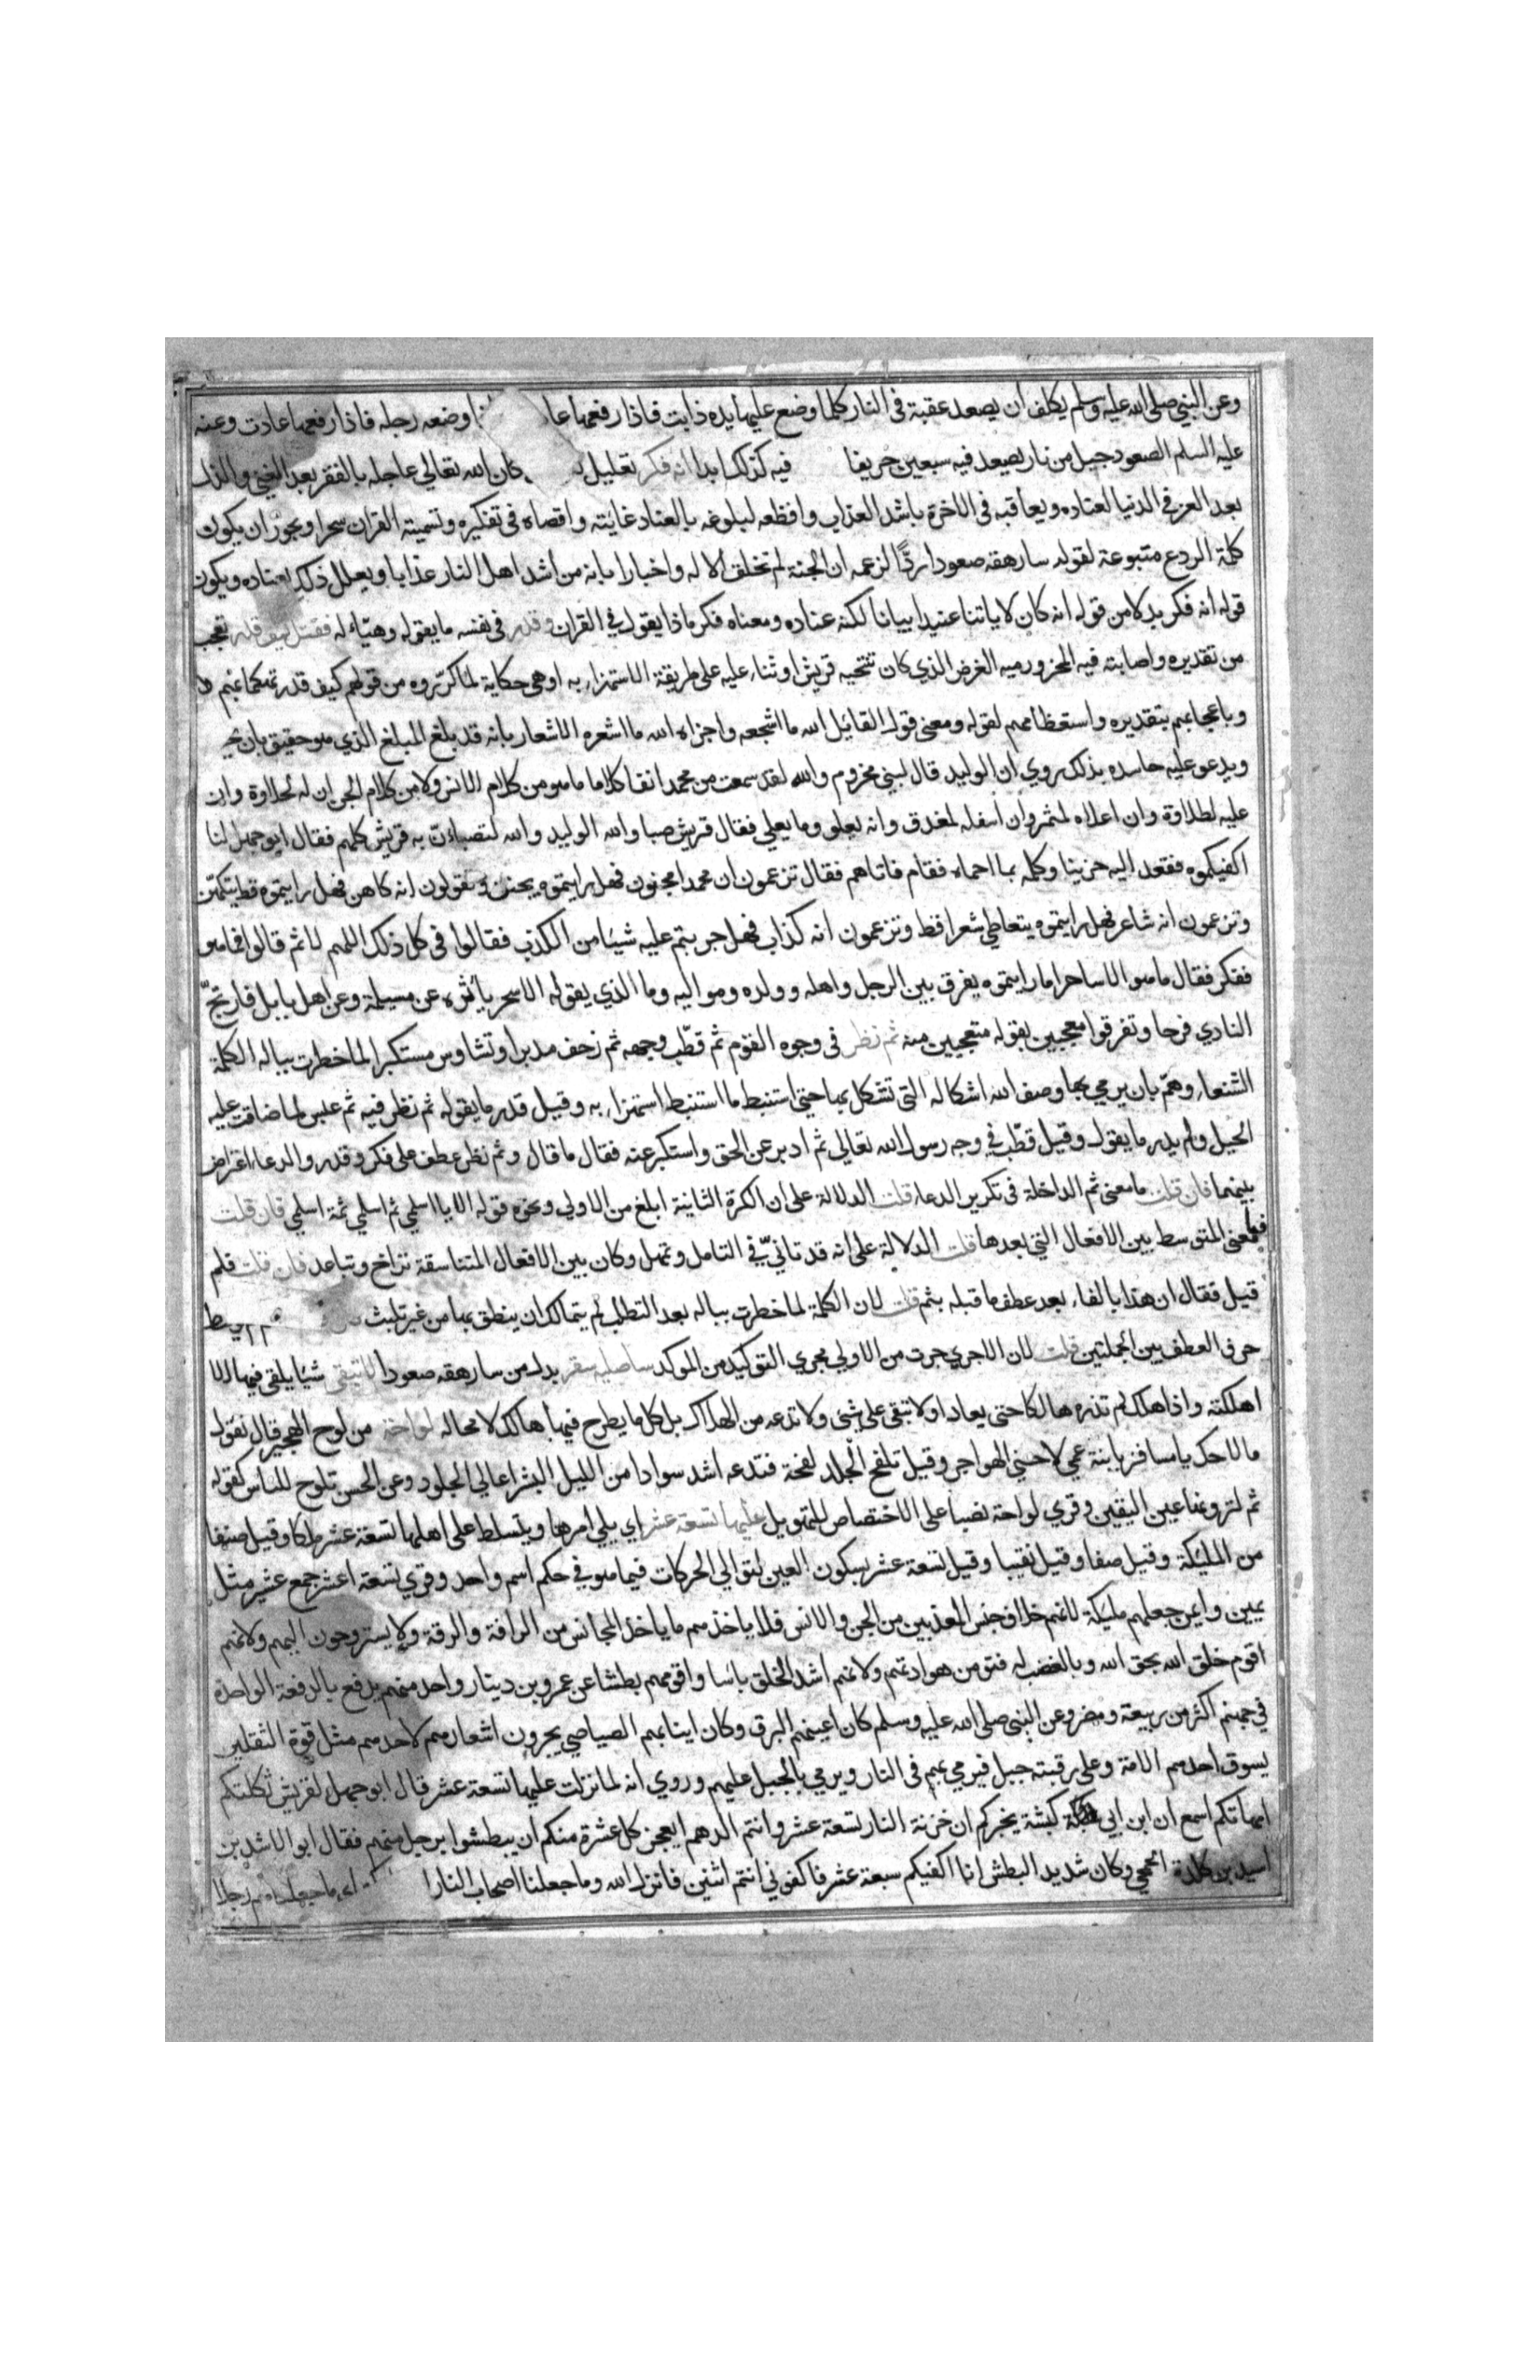 وعن النبي صلى الله عليه وسلم يكلف ان يصعد عقبة في النار كلما وضع عليها يده ذابت فاذا رفعها عا واوضعه رجله فاذا رفعها عادت وعنه
عليه السلم الصعود جبل من نار يصعد فيه سبعين خريفا فيه كذلك ابدا انه فكر تعليل كان الله تعالي عاجله بالفقر بعد الغنى والذل
بعد العز في الدنيا لعناده ويعاقبه في الاخرة باشد العذاب وافظعه لبلوغه بالعناد غايته واقصاه في تفكيره وتسميته القران سحرا ويجوز ان يكون
كلمة الردع متبوعة لقوله سارهقه صعودا ردًّا لزعمه ان الجنة لم تخلف الا له واخبارا بانه من اشد اهل النار عذابا ويعلل ذلك بعناده ويكون
قوله انه فكر بدلا من قوله انه كان لاياتنا عنيدا بيانا لكنه عناده ومعناه فكر ماذا يقول في القران وقدر في نفسه ما يقوله وهيّاء له فقتل كيف قدر تعجب
من تقديره واصابته فيه المحز ورميه الغرض الذي كان تنتحيه قريش او ثناء عليه على طريقة الاستهزاء به او هي حكاية لما كرّروه من قولهم كيف قدر تهكما بهم
وباعجابهم بتقديره واستعظامهم لقوله ومعنى قول القائل الله ما اشجعه واجزاه الله ما اشعره الاشعار بانه قد بلغ المبلغ الذي هو حقيق بان
ويدعو عليه حاسده بذلك روي ان الوليد قال لبني مخزوم والله لقد سمعت من محمد انفا كلاما ما هو من كلام الانس ولا من كلام الجن ان له لحلاوة وان
عليه لطلاوة وان اعلاه لمثمر وان اسفله لمغدق وانه يعلو وما يعلي فقال قريش صبا والله الوليد والله لتصباءن به قريش كلهم فقال ابو جهل انا
اكفيكموه فقعد اليه حزينا وكلمه بما احماه فقام فاتاهم فقال تزعمون ان محمدا مجنون فهل رايتموه يخنق وتقولون انه كاهن فهل رايتموه قط يتكهّن
وتزعمون انه شاعر فهل رايتموه يتعاطي شعرا قط وتزعمون انه كذاب فهل جربتم عليه شيئا من الكذب فقالوا في كل ذلك اللهم لا ثم قالوا فما هو
ففكر فقال ما هو الا ساحر اما رايتموه يفرق بين الرجل واهله وولده ومواليه وما الذي يقوله الا سحر ياثره عن مسيلمة وعن اهل بابل فارتجّ
النادي فرحا وتفرقوا معجبين بقوله متعجبين منه ثم نظر في وجوه القوم ثم قطّب وجهه ثم زحف مدبرا وتشاوس مستكبرا لما خطرت بباله الكلمة
الشنعاء وهمّ بان يرمي بها وصف الله اشكاله التي تشكل بها حتى استنبط ما استنبط استهزاء به وقيل قدر ما يقوله ثم نظر فيه ثم عبس لما ضاقت عليه
الحيل ولم يدر ما يقول وقيل قطّب في وجه رسول الله تعالي ثم ادبر عن الحق واستكبر عنه فقال ما قال وثم نظر عطف على فكر وقدر والدعاء اعتراض
بينهما فان قلت ما معنى ثم الداخلة في تكرير الدعاء قلت الدلالة على ان الكرة الثانية ابلغ من الاولي ونحوه قوله الا يا اسلمي ثم اسلمي ثمة اسلمي فان قلت
فما معنى المتوسط بين الافعال التي بعدها قلت الدلالة على انه قد تانّي في التامل وتمهل وكان بين الافعال المتناسقة تراخ وتباعد فان قلت فلم
قيل فقال ان هذا بالفاء بعد عطف ما قبله بثم قلت لان الكلمة لما خطرت بباله بعد التطلب لم يتمالك ان ينطق بها من غير تلبث
حرف العطف بين الجملتين قلت لان الاجري جرت من الاولي مجري التوكيد من الموكد ساصليه سقر بدل من سارهقه صعودا لا تبقي شيئا يلقى فيها الا
اهلكته واذا هلك لم تذره هالكا حتى يعاد او لا تبقي على شئ ولا تدعه من الهلاك بل كل ما يطرح فيها هالك لا محاله لواحة من لوح الهجير قال تقول
ما لاحك يا مسافر يا بنة عمي لاحني الهواجر وقيل تلفح الجلد لفحة فتدعه اشد سوادا من الليل البشر اعالي الجلود وعن الحسن تلوح للناس كقوله
ثم لترونها عين اليقين وقري لواحة نصبا على الاختصاص للتهويل عليها تسعة عشر اي يلي امرها ويتسلط على اهلها تسعة عشر ملكا وقيل صنفا
من المليكة وقيل صفا وقيل نقيبا وقيل تسعة عشر بسكون العين لتوالي الحركات فيما هو في حكم اسم واحد وقري تسعة اعشر جمع عشير مثل
يمين وايمن جعلهم مليكة لانهم خلاف جنس المعذبين من الجن والانس فلا ياخذهم ما ياخذ المجانس من الرافة والرقة ولا يستروحون اليهم ولانهم
اقوم خلق الله بحق الله وبالغضب له فتومن هوادتهم ولانهم اشد الخلق باسا واقوهم بطشا عن عمرو بن دينار واحد منهم يدفع بالدفعة الواحدة
في جهنم اكثر من ربيعة ومضر وعن النبي صلى الله عليه وسلم كان اعينهم البرق وكان انيابهم الصياصي يجرون اشعارهم لاحدهم مثل قوة الثقلين
يسوق احدهم الامة وعلى رقبته جبل فيرمي بهم في النار ويرمي بالجبل عليهم وروي انه لما نزلت عليها تسعة عشر قال ابو جهل لقريش ثكلتكم
امهاتكم اسمع ان ابن ابي كبشة يخبركم ان خزنة النار تسعة عشر وانتم الدهم ايعجز كل عشرة منكم ان يبطشوا برجل منهم فقال ابو الاشد بن
اسيد بن كلدة الجمحي وكان شديد البطش انا اكفيكم سبعة عشر فاكفوني انتم اثنين فانزل الله وما جعلنا اصحاب النار ا ما جعلناهم رجلا